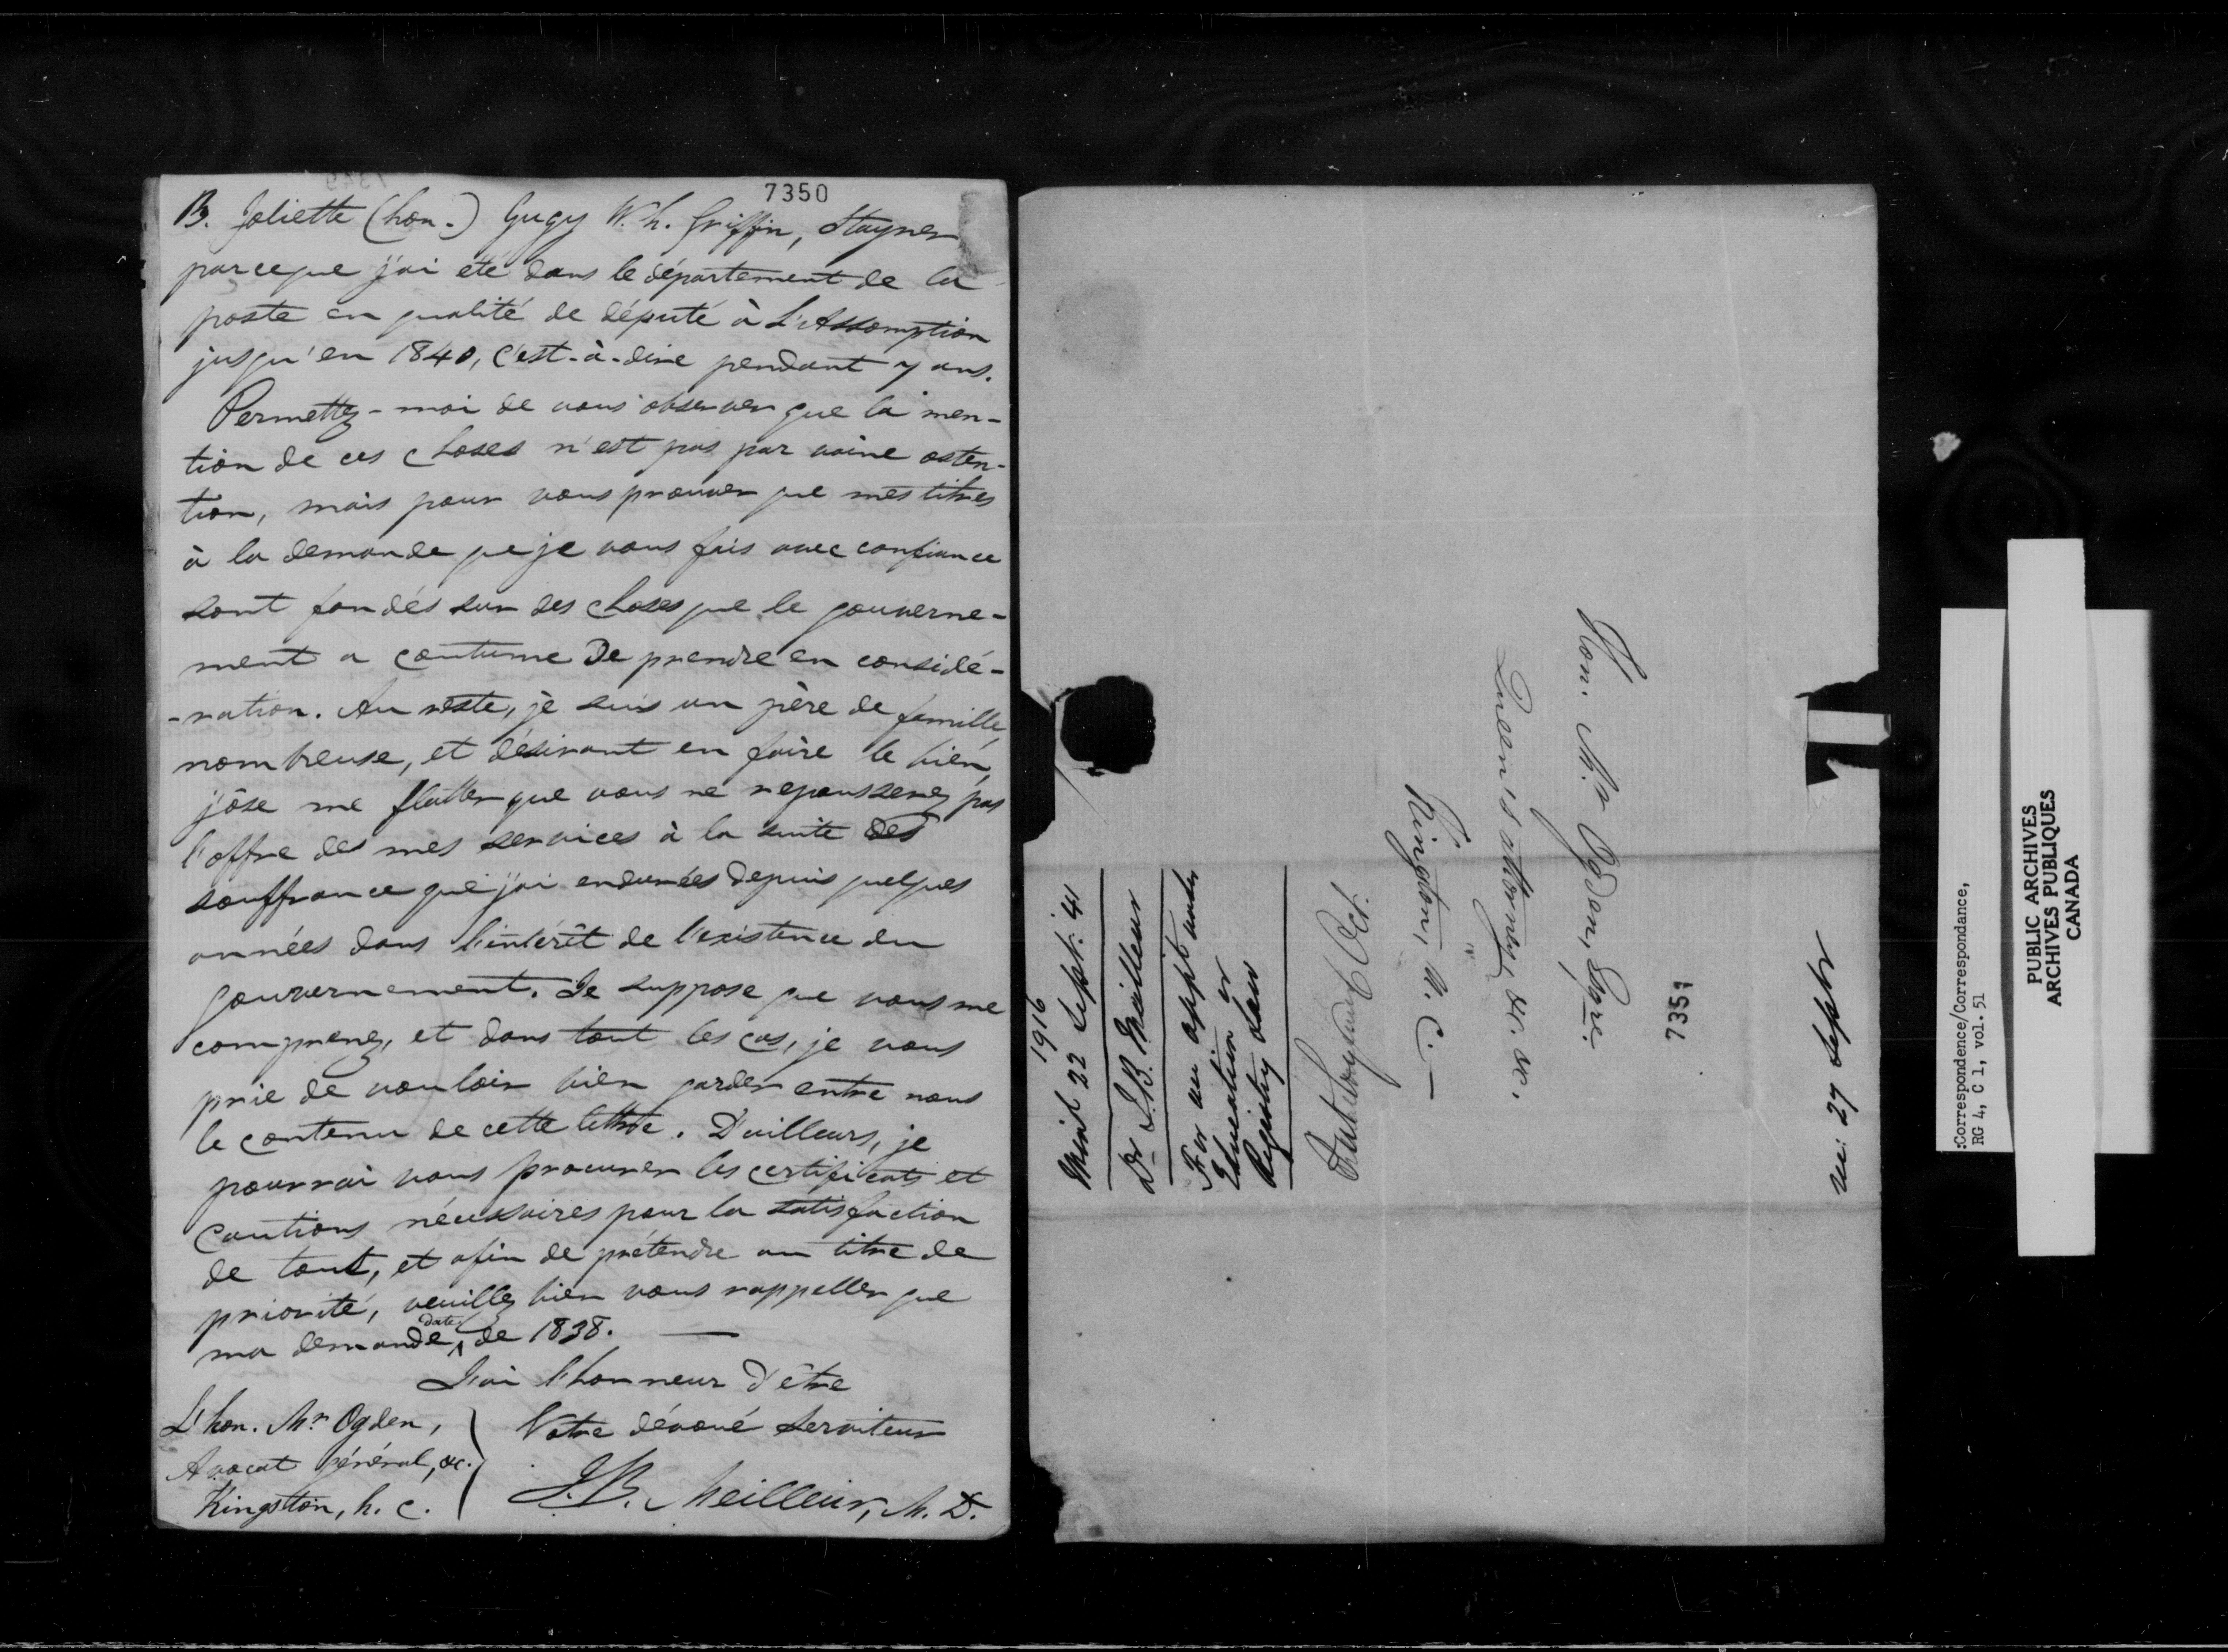 7350
B. Joliette (hon.) Gugy W. h. Griffin, Stayner
parceque j'ai été dans le département de la
poste en qualité de député à L'Assomption
jusqu'en 1840, c'est-à-dire pendant 7 ans.
Permettez-moi de vous observer que la men-
tion de ces choses n'est pas par vaine osten-
tion, mais pour vous prouver que mes titres
à la demande que je vous fais avec confiance
sont fondés sur des choses que le gouverne-
ment a coutume de prendre en considé-
-ration. Au reste, je suis un père de famille
nombreuse, et désirant en faire le bien,
j'ôse me flatter que vous ne repousserez pas
l'offre des mes services à la suite des
souffrance que j'ai endurées depuis quelques
années dans l'intérêt de l'existence du
gouvernement. Je suppose que vous me
comprenez, et dans tout les cas, je vous
prie de vouloir bien garder entre nous
le contenu de cette lettre. D'ailleurs, je
pourrai vous procurer les certificats et
cautions nécessaires pour la satisfaction
de tout, et afin de prétendre au titre de
priorité, veuillez bien vous rappeller que
ma demande date de 1838.
J'ai l'honneur d'être
Votre dévoué serviteur
J. B. Meilleur, M. D.
L'hon. Mr Ogden,
Avocat Général, &c.
Kingston, h. C.
1916
22 Sept. 41
Dr J. B. Meilleur
For an appt under
Education or
Registry Laws
Oct.
Hon. Mr Ogden, Esqre.
Queen's Attorney, &c. &c.
Kingston, U. C.
7351
27 Septr
:Correspondence/Correspondance,
RG 4, C 1, vol. 51
PUBLIC ARCHIVES
ARCHIVES PUBLIQUES
CANADA